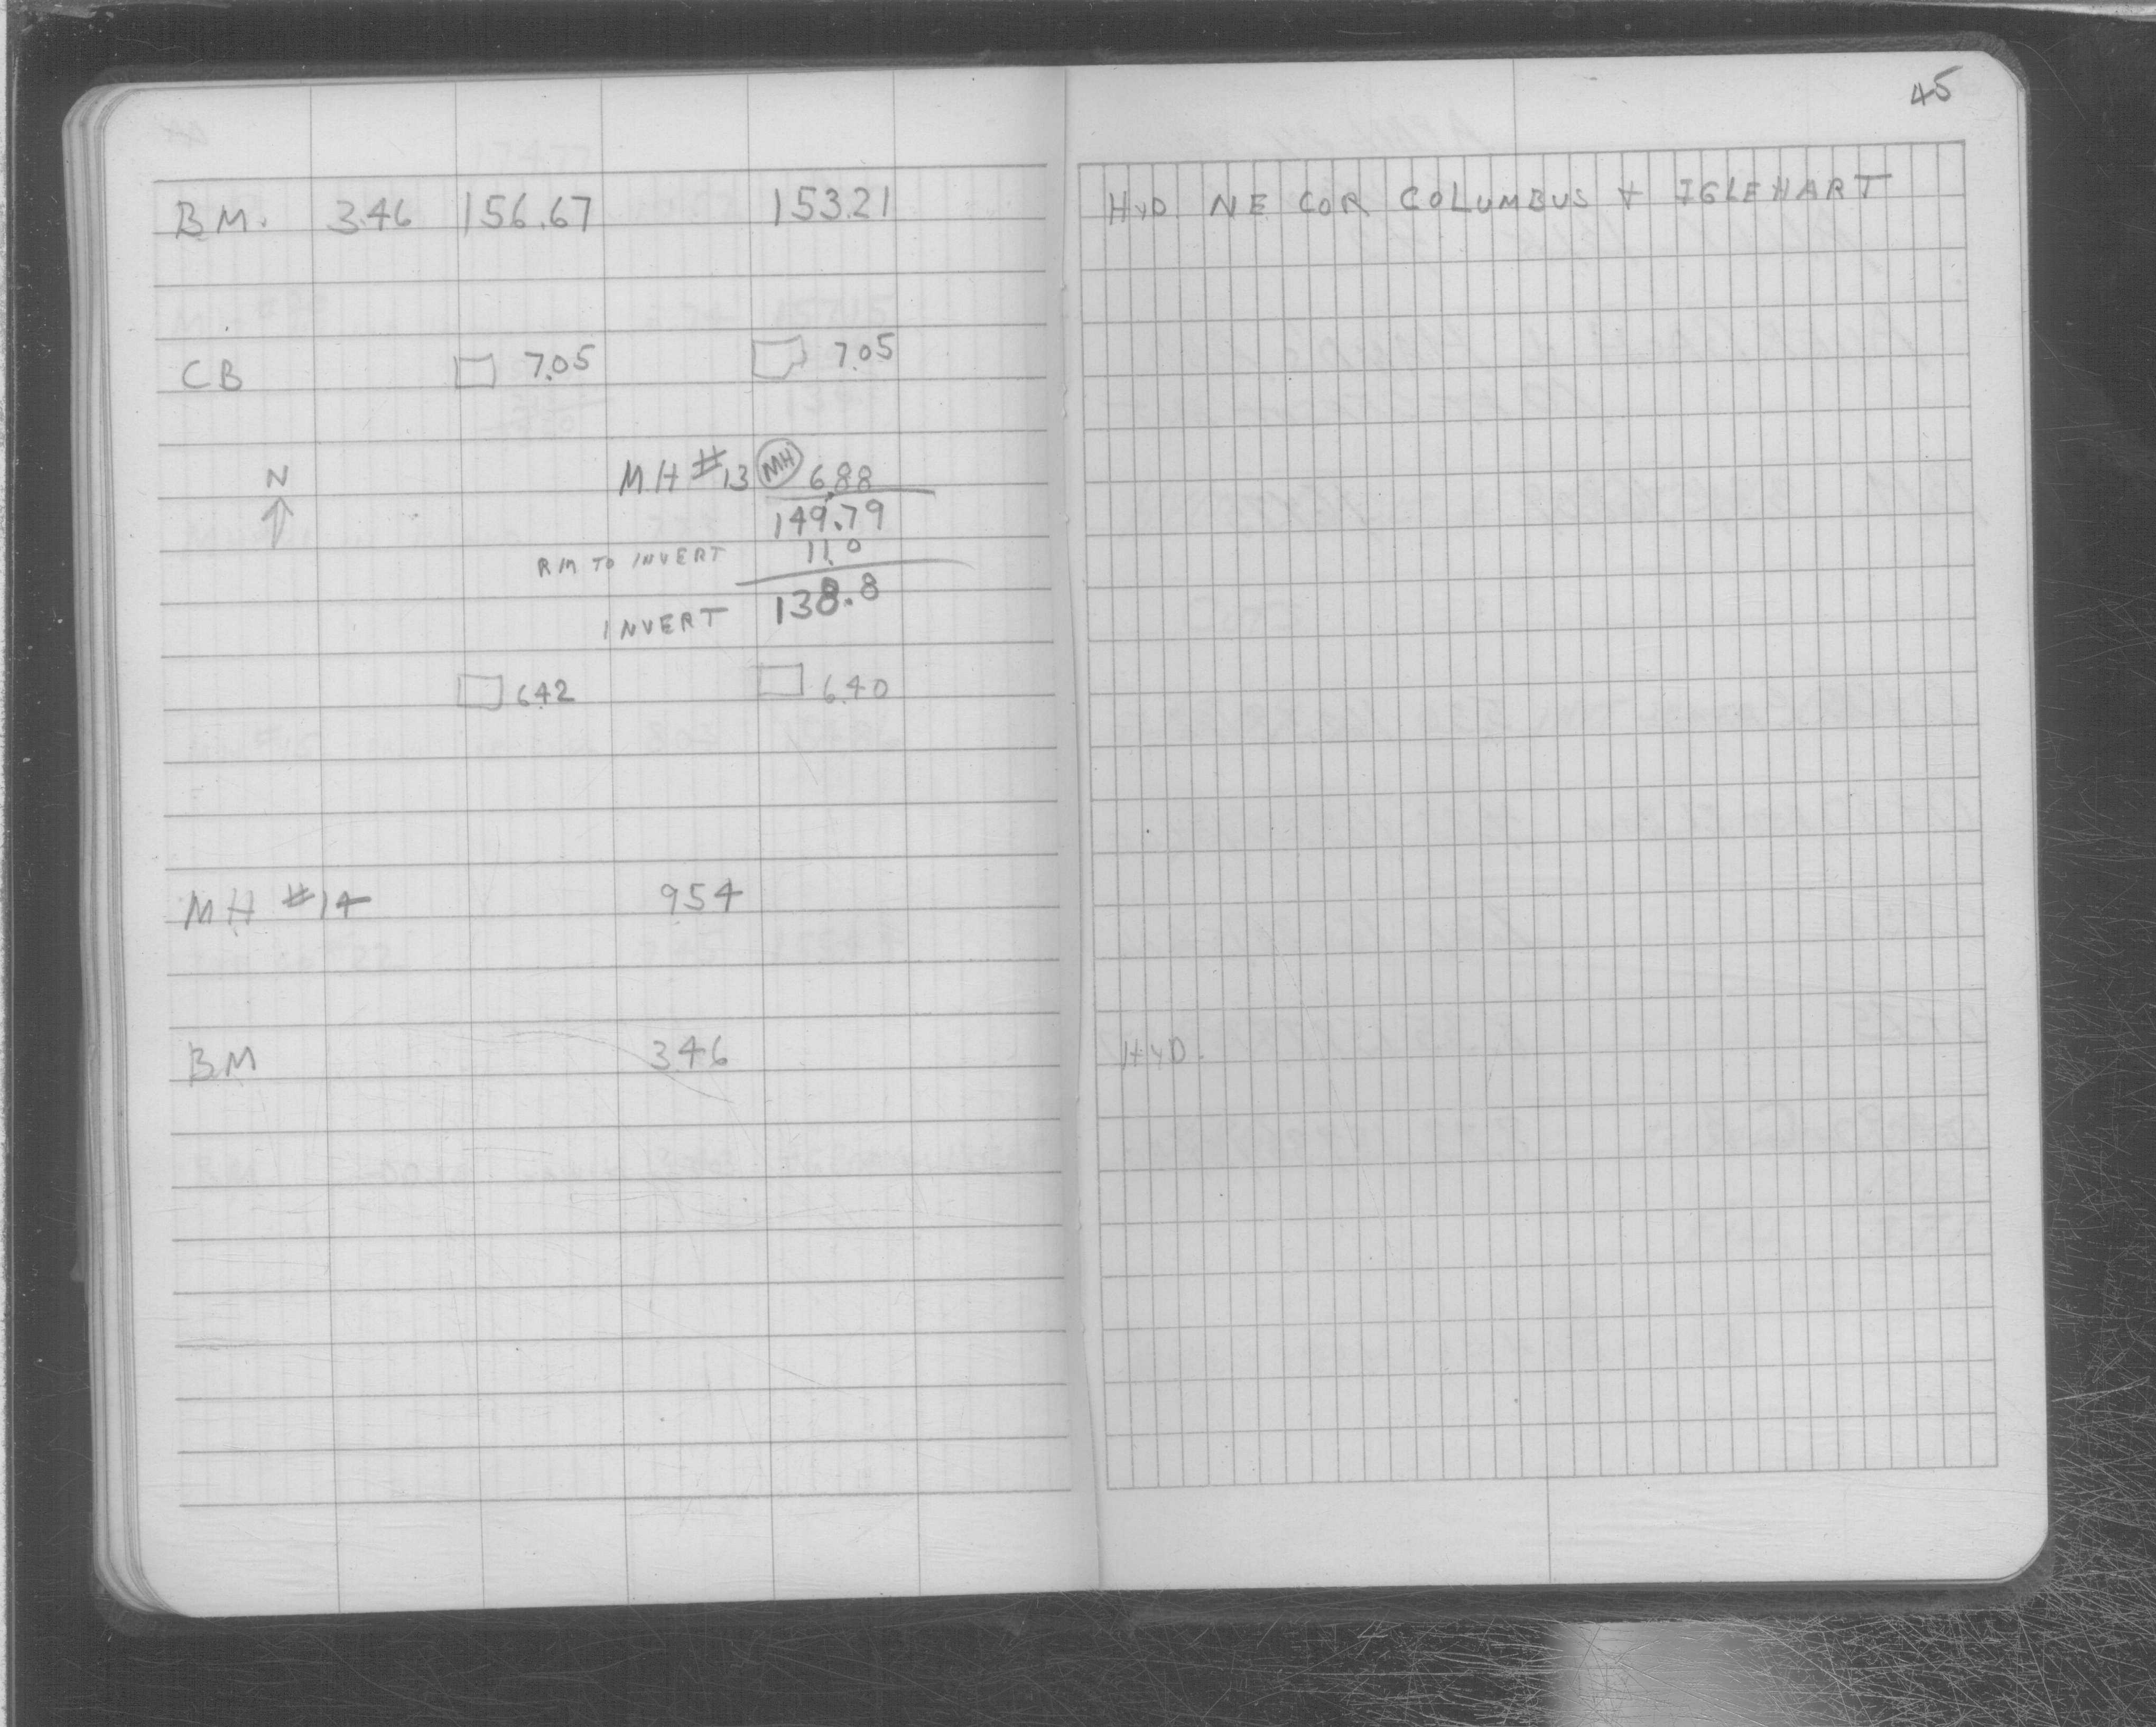 45
BM. 3.46 156.67 153.21 HYD. NE COR COLUMBUS & IGLEHART
CB 7.05 7.05
N MH #13 MH 6.88
149.79
RM TO INVERT 11.0
INVERT 138.8
6.42 6.40
MH #14 954
BM 3.46 HYD.